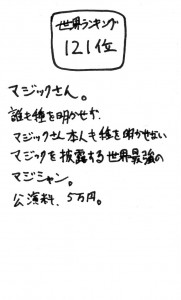 世界ランキング
121位
マジックさん。
誰も種を明かせず、
マジックさん本人も種を明かせない
マジックを披露する世界最強の
マジシャン。
公演料、5万円。